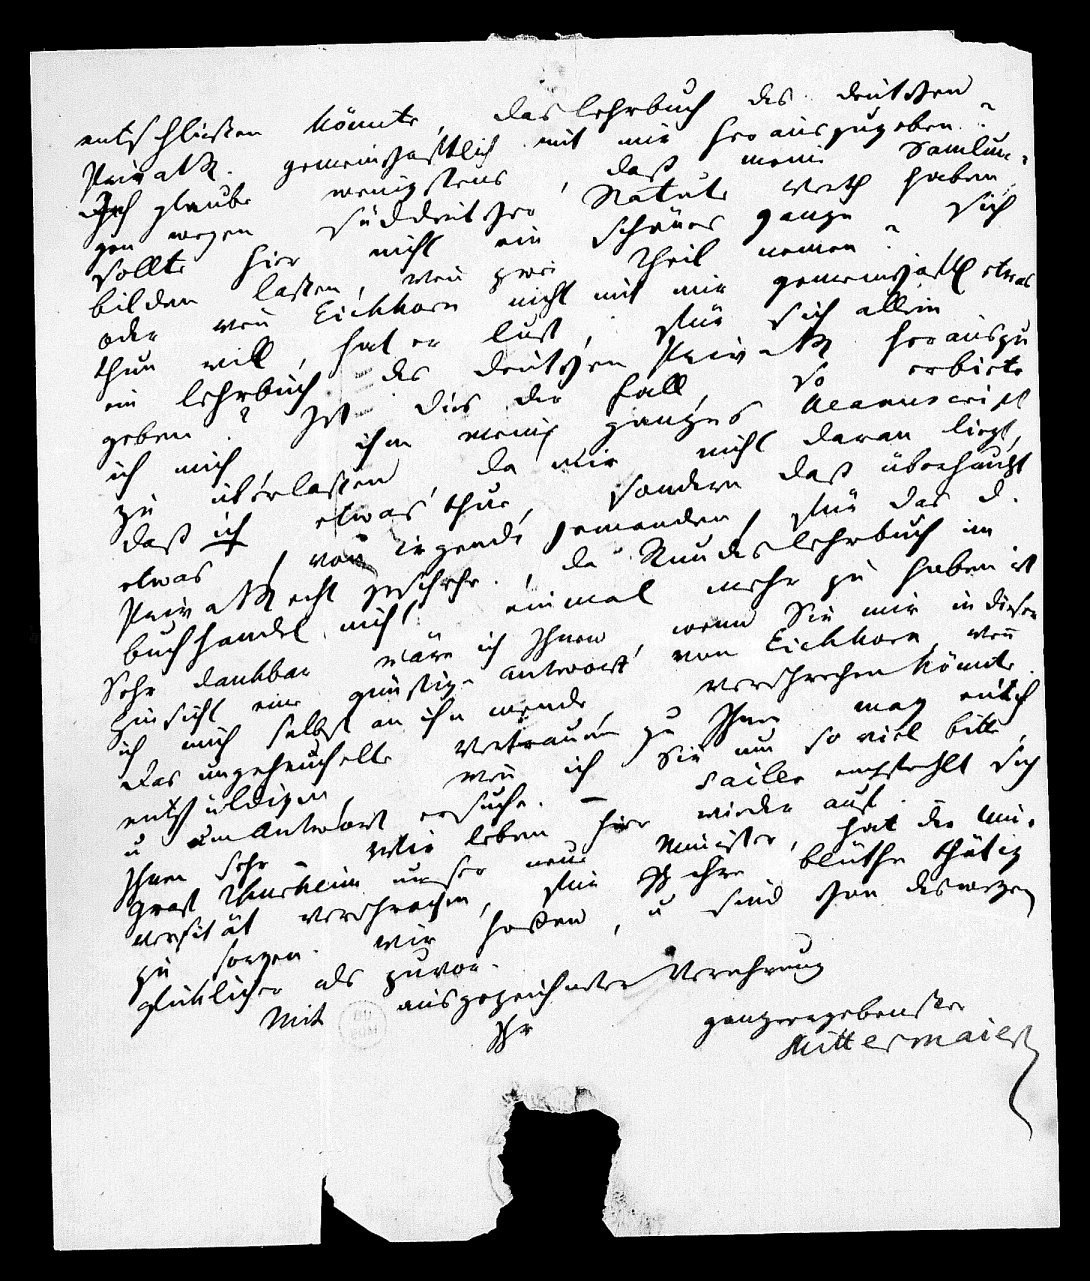 entschließen könnte, das Lehrbuch des deutschen
PrivatR. gemeinschaftlich mit mir herauszugeben?
Ich glaube wenigstens, daß meine Samlun-
gen wegen süddeutscher Statute Werth haben
sollte hier nicht ein schönes ganze sich
bilden laßen, wen zwei Theil nemen?
oder wen Eichhorn nicht mit mir gemeinschaftl etwas
thun will, hat er Lust, für sich allein
ein Lehrbuch des deutschen PrivatR herauszu
geben? Ist dies der Fall, so erbiete
ich mich, ihm mein ganzes Manuscript
zu überlaßen, da mir nicht daran liegt,
daß ich etwas thue, sondern daß überhaupt
etwas, von irgend jemanden, für das d.
PrivatRecht geschehe, da Rundes Lehrbuch im
Buchhandel nicht einmal mehr zu haben ist
Sehr dankbar wäre ich Ihnen, wenn Sie mir in dieser
Hinsicht eine günstige Antwort von Eichhorn, wen
ich mich selbst an ihn wende, versprechen könnte.
Das ungeheuchelte Vertrauen zu Ihnen mag mich
entschuldigen, wen ich Sie um so viel bitte,
u um Antwort ersuche. – Sailer empfiehlt sich
Ihnen sehr – Wir leben hier wieder auf.
Graf Thurheim unser neue Minister, hat der Uni-
versität versprochen, für ihre Blüthe thätig
zu sorgen. Wir hoffen, u sind schon deswegen
glüklicher als zuvor.
Mit ausgezeichneter Verehrung
Ihr ganzergebenster
Mittermaier